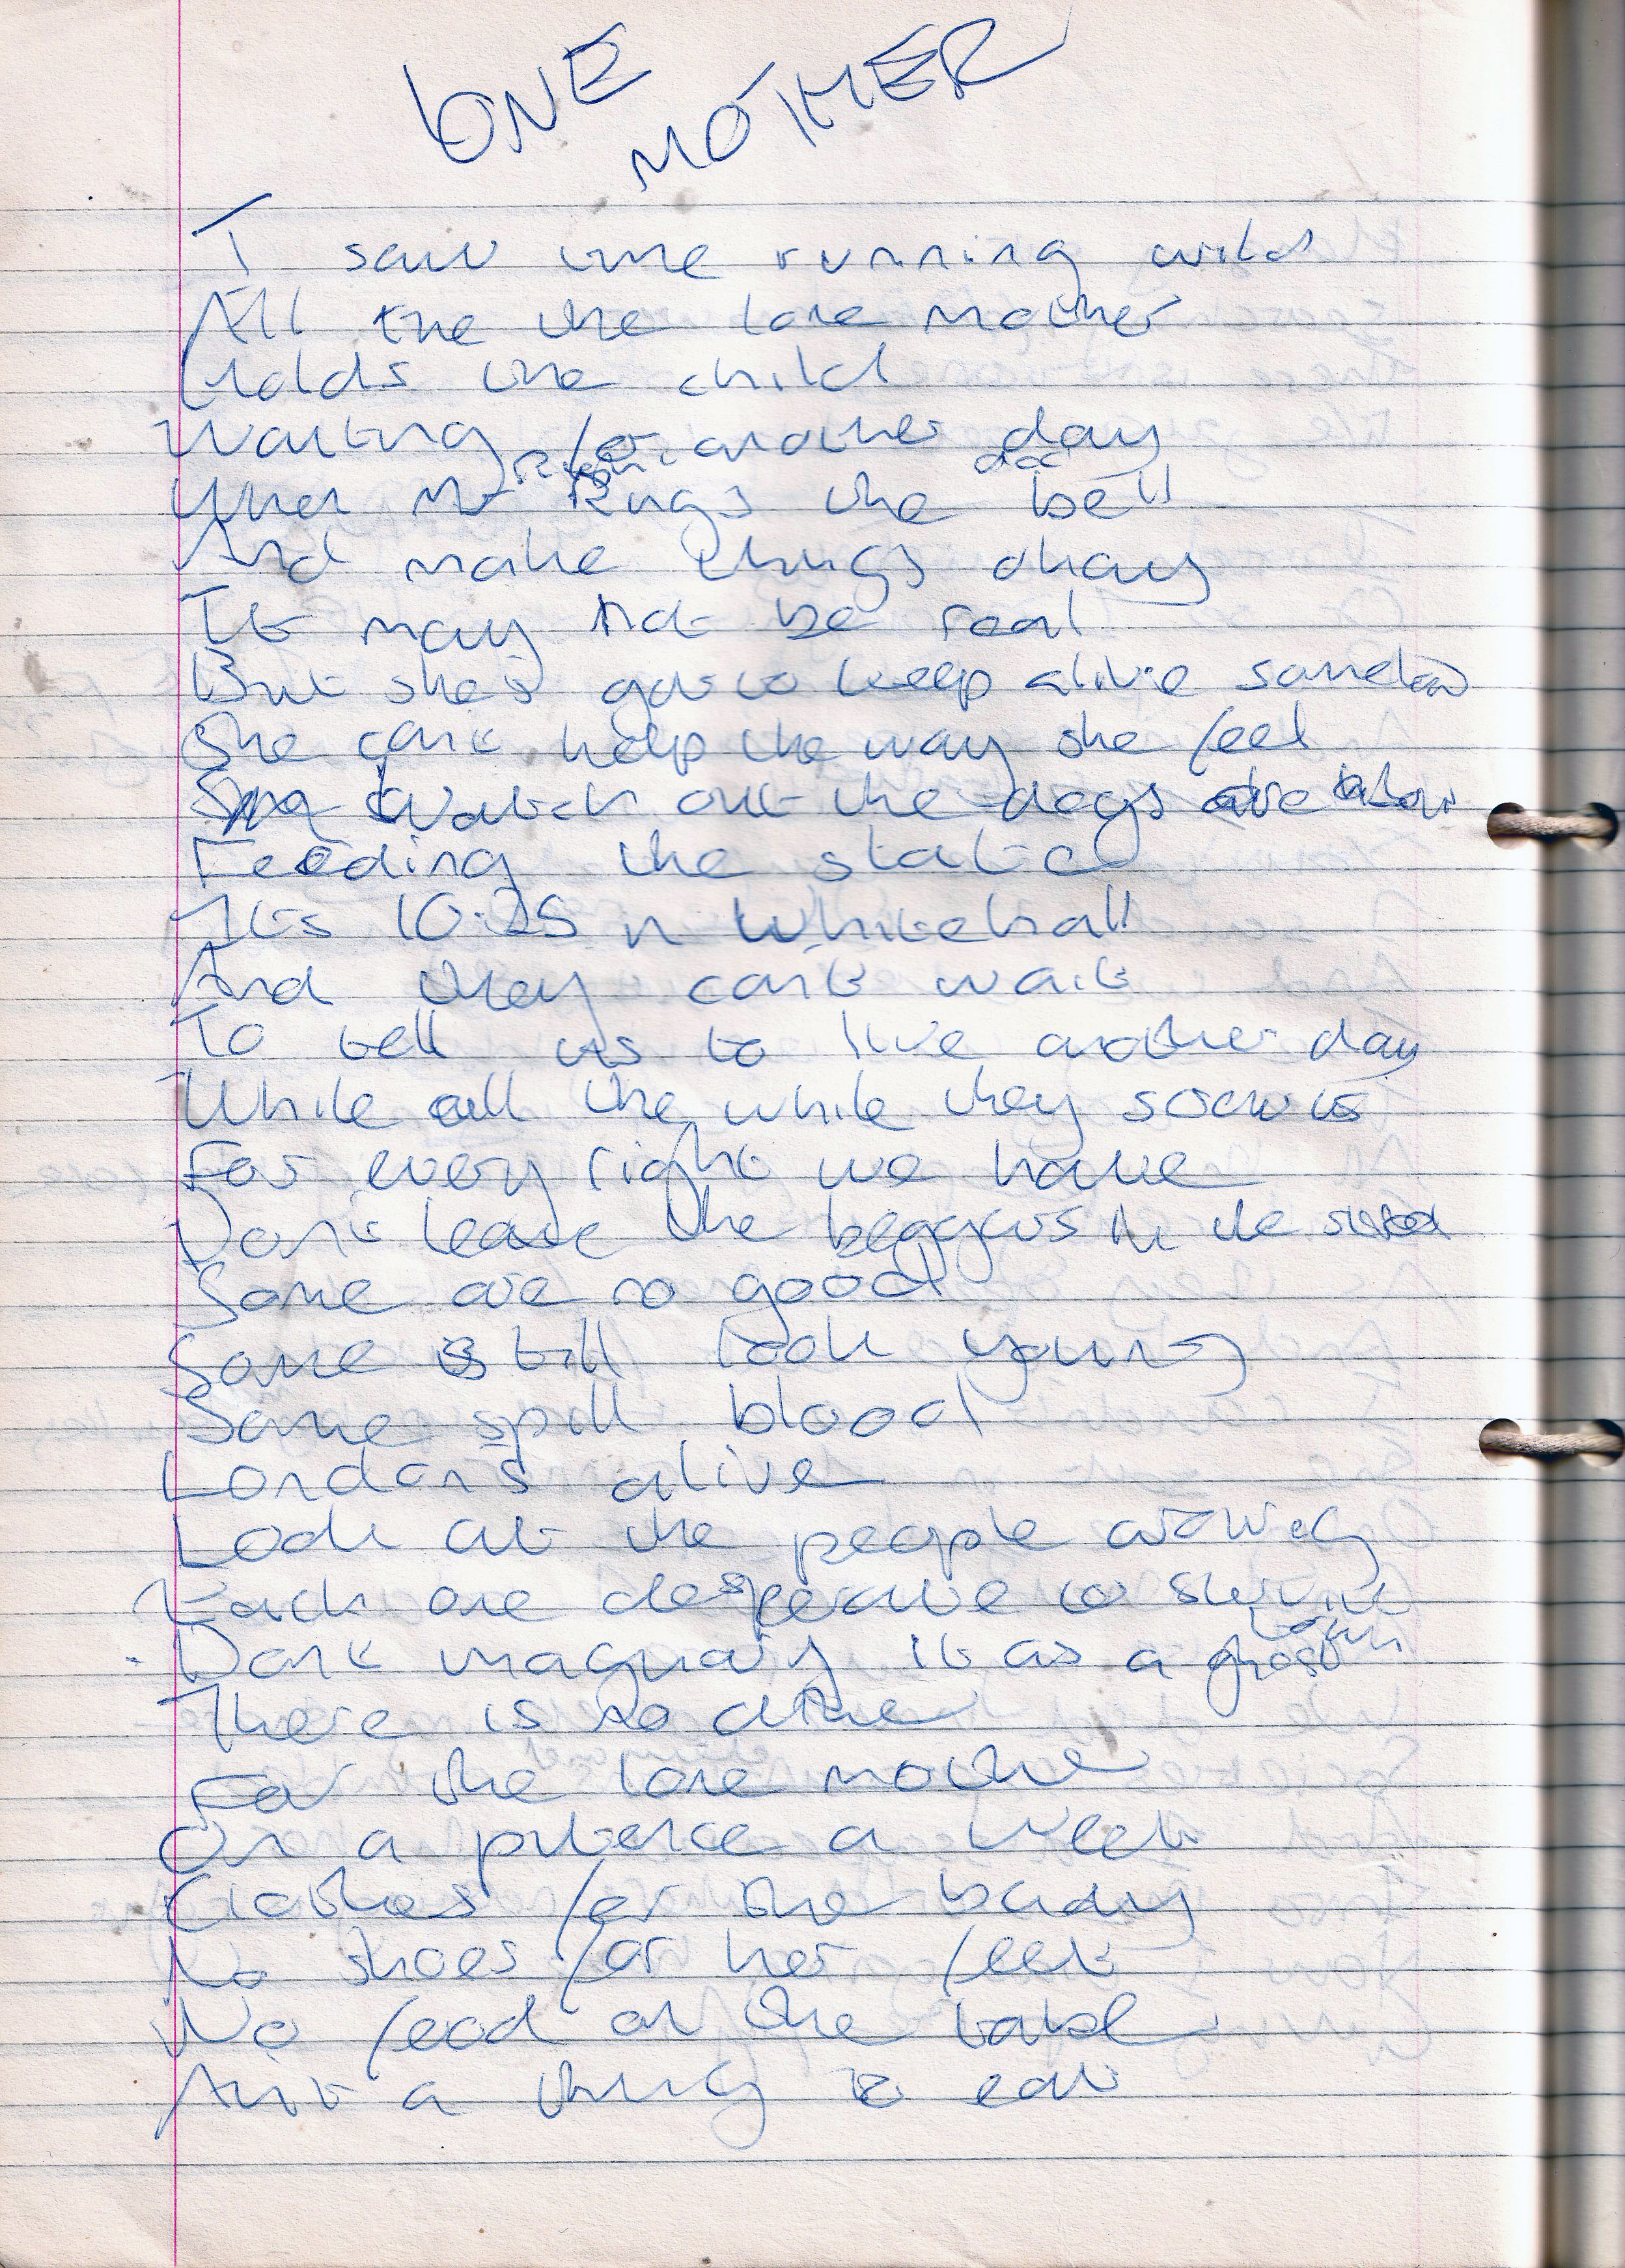 LONE MOTHER
I saw time running wild
All the the lone mother
Holds the child
Waiting for another day
When Mr Right Rings the bell
And make things okay
It may not be real
But she's got to keep alive somehow
She can't help the way she feel
Watch out the dogs are
Feeding the static
It's 10.25 in Whitehall
And they can't wait
To tell us to live another day
While all the while they screw us
For every right we have
Don't leave the beggars in the
Some are no good
Some still look young
Some spill blood
London's alive
Look at the people
Each one desperate to survive
Don't imaginary it as a ghost town
There is no other
For the lone mother
On a pittence a week
Clothes for the baby
No shoes for her feet
No food on the table
Ain't a thing to eat